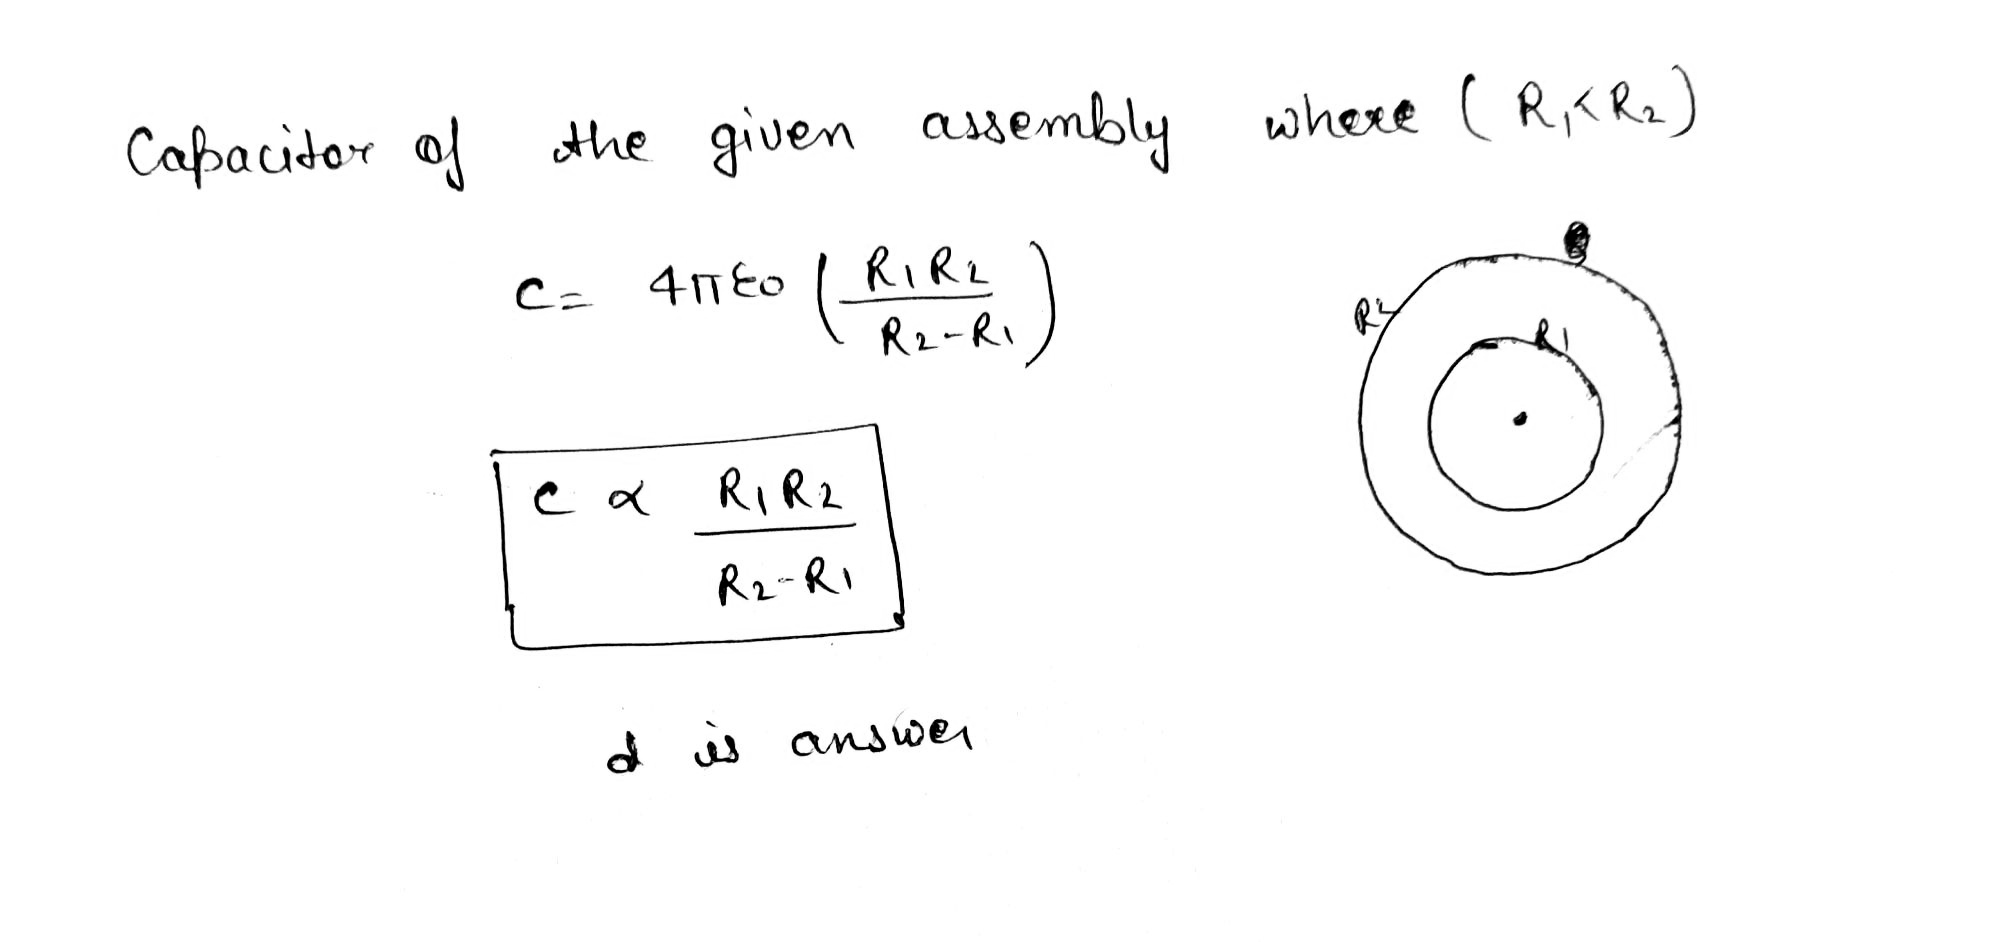 Capacitor of the given assembly where (R1<R2)
C = 4πε0 (R1R2 / R2-R1)
R2
R1
C ∝ R1R2 / R2-R1
d is answer